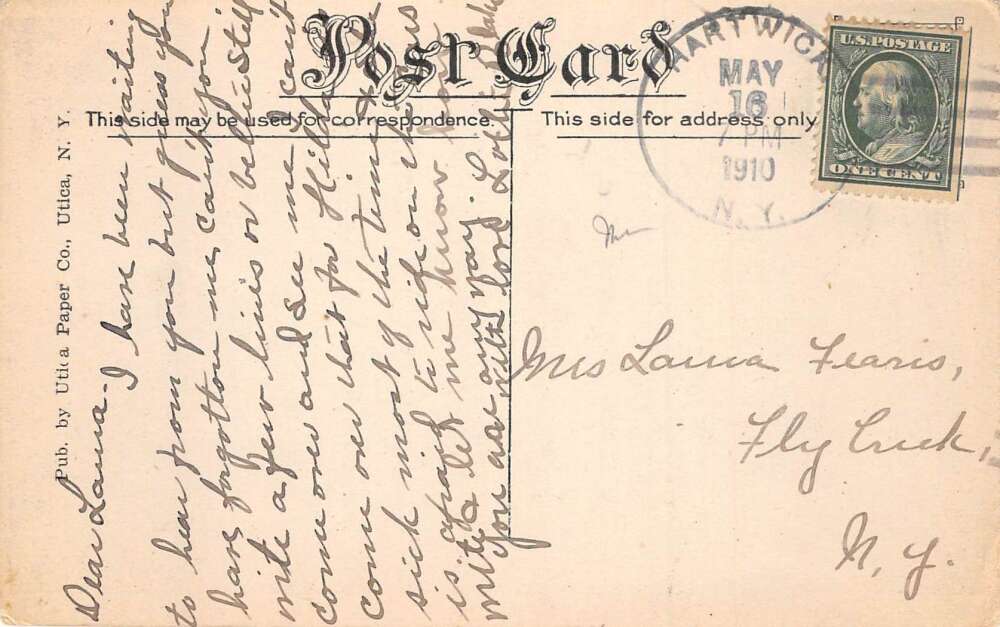 Post Card
This side may be used for correspondence.
This side for address only
HARTWICK
MAY
16
7 PM
1910
N. Y.
U.S. POSTAGE
ONE CENT
Pub. by Utica Paper Co., Utica, N. Y.
Dear Laura- I have been waiting
to hear from you but guess you
have forgotton me, can't you
write a few lines or bettie still
come over and see me I can't
come over that for Hilda
sick most of the time
afraid to ride on the cars
is let me know how
write you are any way.
with love
Mrs Laura Fearis,
Fly Creek,
N. Y.